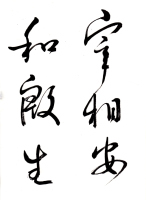 宰相安
和殷生